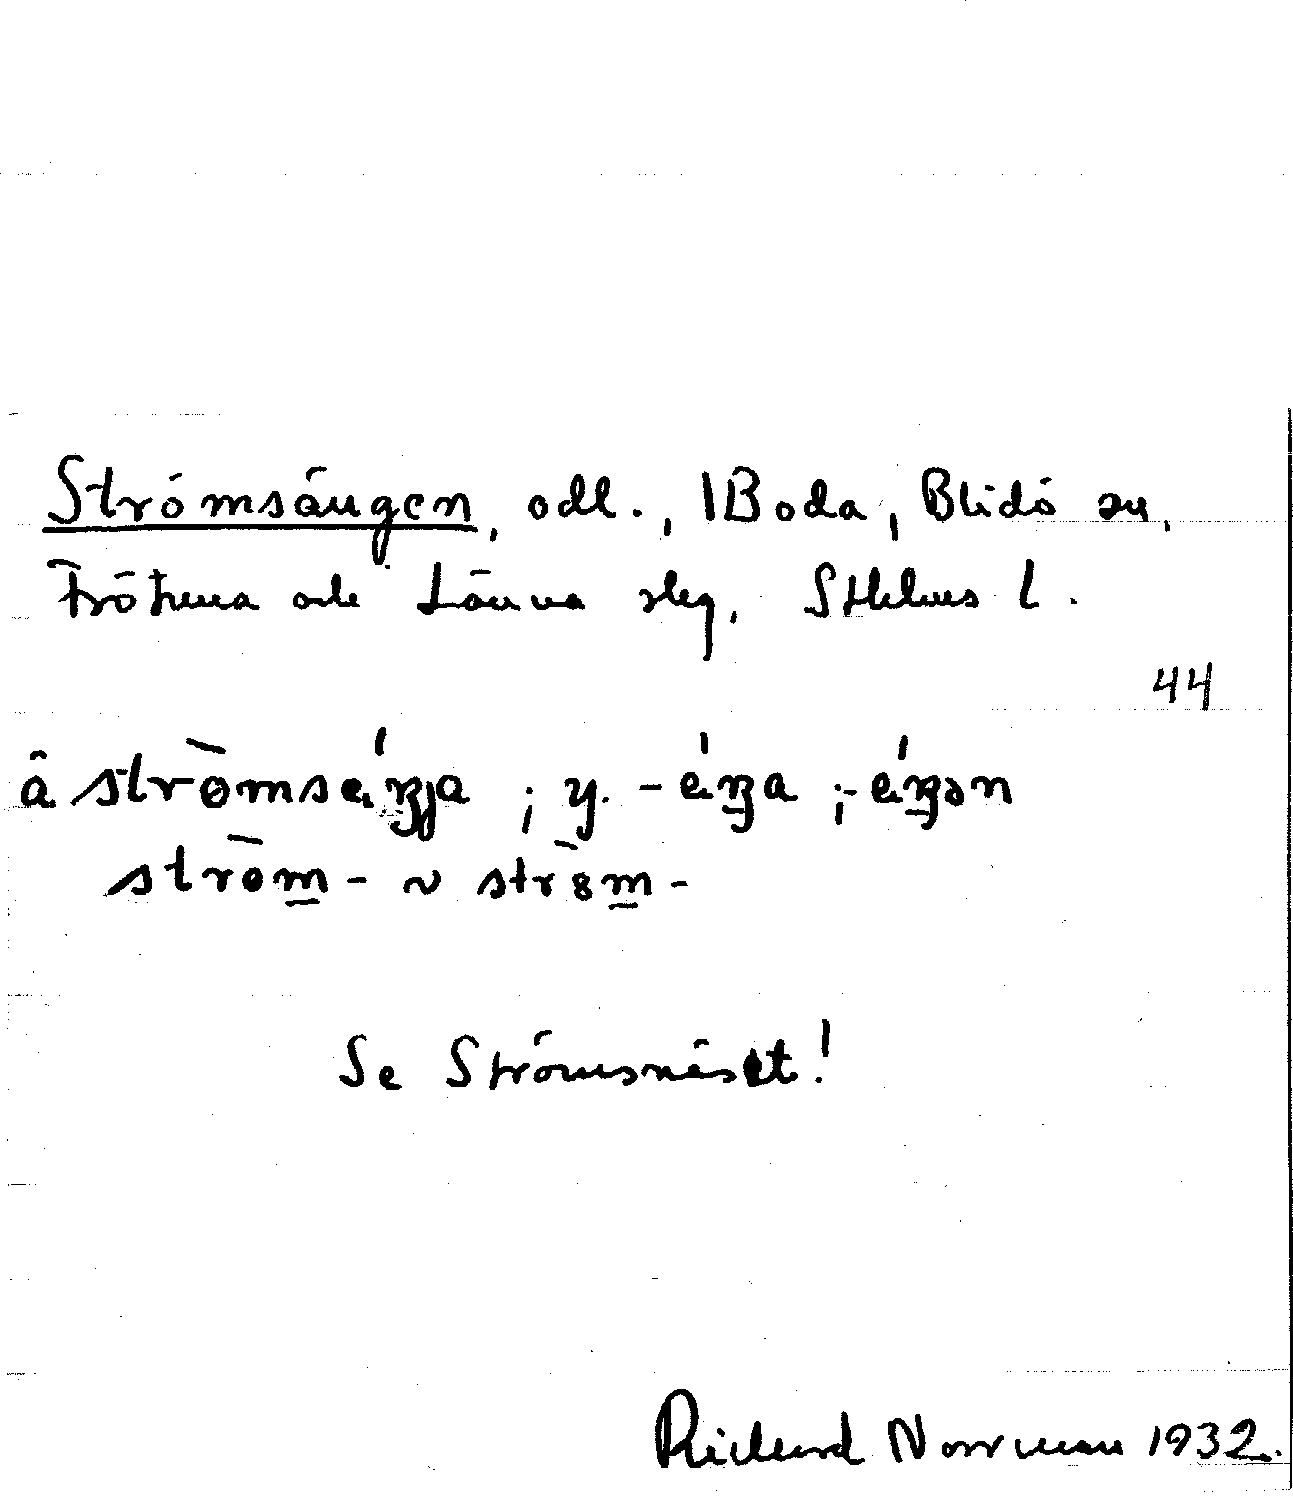 Strömsängen, odl., 1 Boda, Blidö sn,
Frötuna och Länna slg, Sthlms l.
44
â strömsèŋja ; y. -éŋa ; -éŋən
strøm- ~ ström-
Se Strömsnäset!
Richard Norrman 1932.